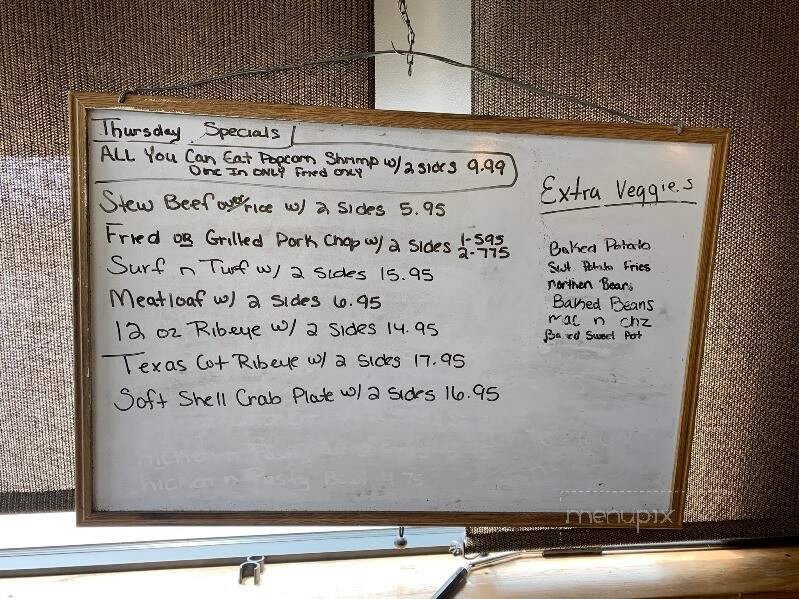 Thursday Specials
ALL You Can Eat Popcorn Shrimp w/ 2 sides 9.99
Dine In ONLY Fried only
Stew Beef over rice w/ 2 Sides 5.95
Fried OR Grilled Pork Chop w/ 2 Sides 1-595
2-775
Surf n Turf w/ 2 Sides 15.95
Meatloaf w/ 2 Sides 6.95
12 oz Ribeye w/ 2 Sides 14.95
Texas Cut Ribeye w/ 2 Sides 17.95
Soft Shell Crab Plate w/ 2 Sides 16.95
Extra Veggies
Baked Potato
Swt Potato Fries
northen Beans
Baked Beans
mac n chz
Baked Sweet Pot
menupix